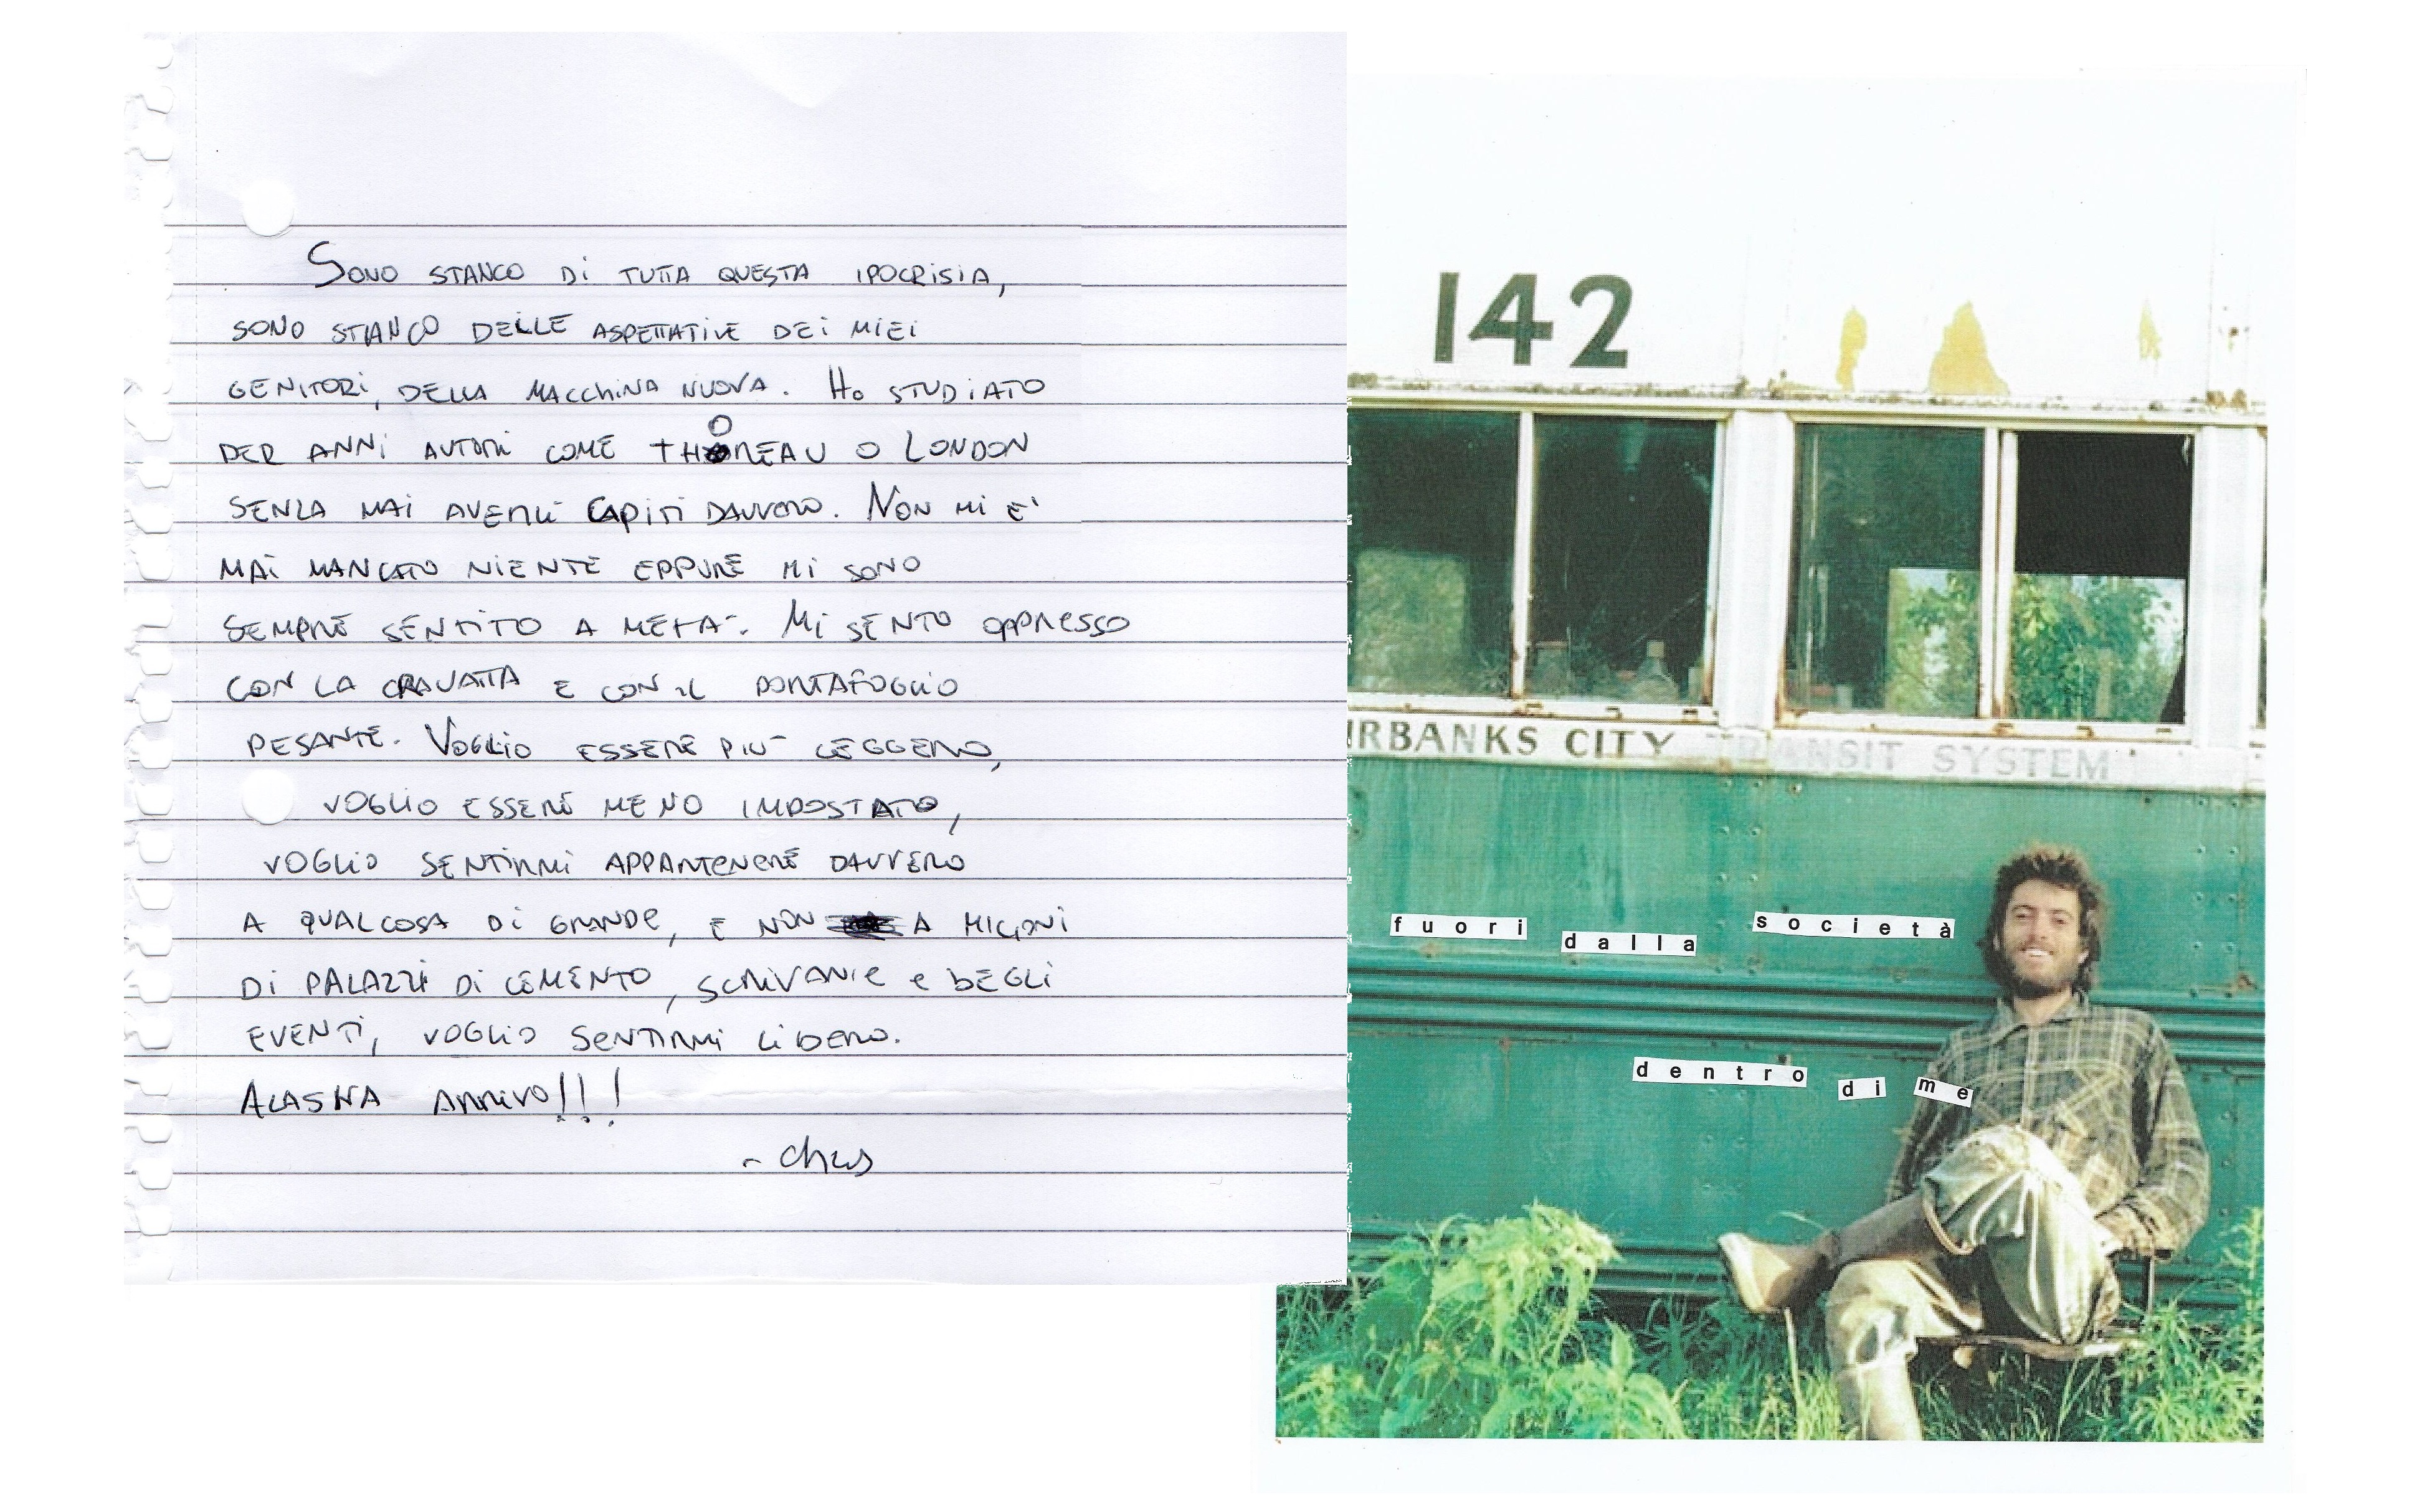 Sono stanco di tutta questa ipocrisia,
sono stanco delle aspettative dei miei
genitori, della macchina nuova. Ho studiato
per anni autori come Thoreau o London
senza mai averli capiti davvero. Non mi e'
mai mancato niente eppure mi sono
sempre sentito a meta'. Mi sento oppresso
con la cravatta e con il portafoglio
pesante. Voglio essere piu' leggero,
voglio essere meno impostato,
voglio sentirmi appartenere davvero
a qualcosa di grande, e non a milioni
di palazzi di cemento, scrivanie e begli
eventi, voglio sentirmi libero.
Alaska arrivo!!!
- Chris
142
IRBANKS CITY TRANSIT SYSTEM
fuori dalla società
dentro di me